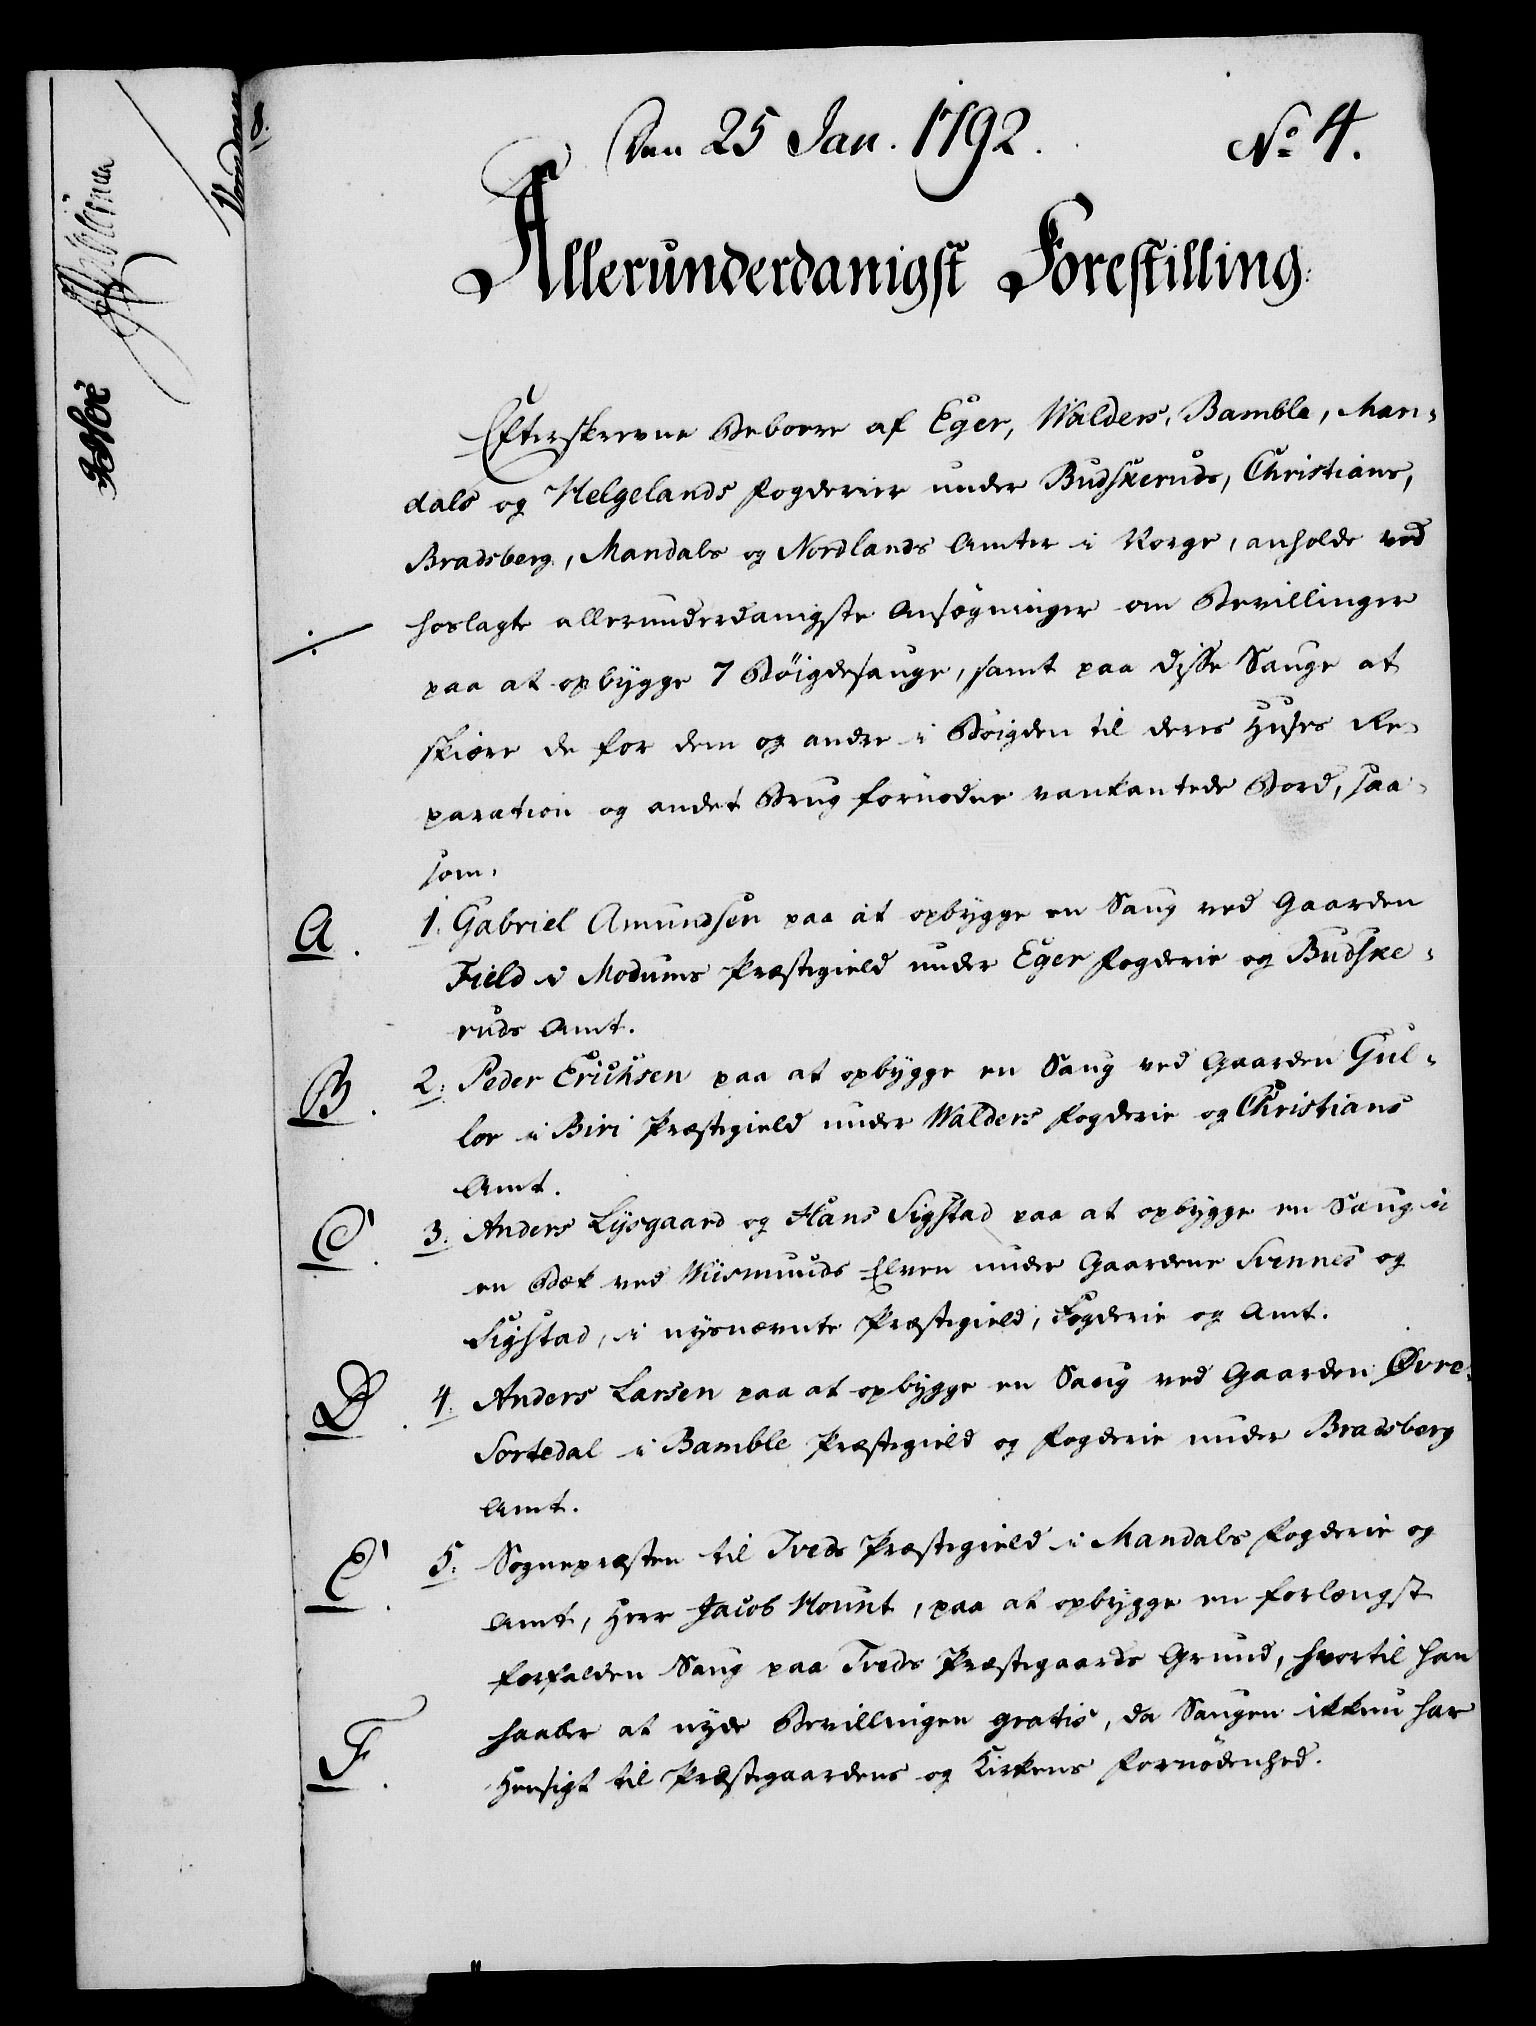 Den 25 Jan. 1792.
No 4.
Allerunderdanigst Forestilling.
Efterskrevne Beboere af Eger, Walders, Bamble, Man-
dals og Helgelands Fogderier under Budskeruds, Christians,
Bradsberg, Mandals og Nordlands Amter i Norge, anholde ved
hoslagte allerunderdanigste Ansøgninger om Bevillinger
paa at opbygge 7 Bøigdesauge, samt paa disse Sauge at
skiære de for dem og andre i Bøigden til deres Huses Re-
paration og andet Brug fornødne vankantede Bord, saa-
som,
A. 1. Gabriel Amundsen paa at opbygge en Saug ved Gaarden
Field i Modums Præstegield under Eger Fogderie og Budske-
ruds Amt.
B. 2. Peder Erichsen paa at opbygge en Saug ved Gaarden Gul-
lor i Biri Præstegield under Walders Fogderie og Christians
Amt.
C. 3. Anders Lysgaard og Hans Sigstad paa at opbygge en Saug i
en Bæk ved Wismunds Elven under Gaardene Svennes og
Sigstad, i nysnævnte Præstegield, Fogderie og Amt.
D. 4. Anders Larsen paa at opbygge en Saug ved Gaarden Øvre-
Sortedal i Bamble Præstegield og Fogderie under Bradsberg
Amt.
E. 5. Sognepræsten til Tveds Præstegield i Mandals Fogderie og
Amt, Herr Jacob Mount, paa at opbygge en forlængst
forfalden Saug paa Tveds Præstegaards Grund, hvortil han
haaber at nyde Bevillingen gratis, da Saugen ikkun har
F. Hensigt til Præstegaardens og Kirkens Fornødenhed.